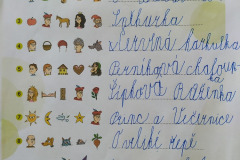 3 Sněhurka
4 Červená karkulka
5 Perníková chaloup-
ka
6 Šípková Růženka
7 Princ a Večernice
8 O veliké řepě